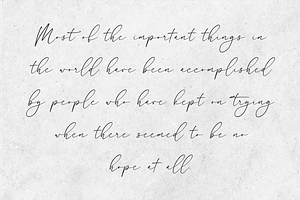 Most of the important things in
the world have been accomplished
by people who have kept on trying
when there seemed to be no
hope at all.